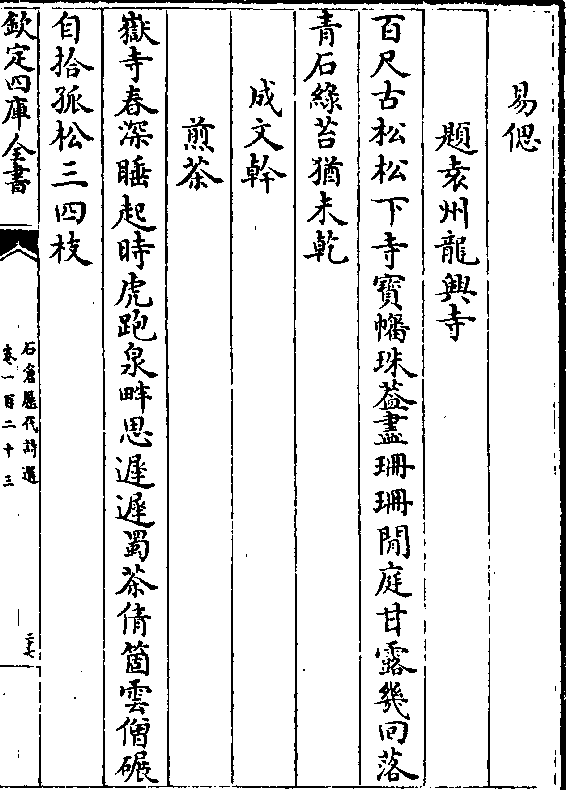 易偲
題袁州龍興寺
百尺古松松下寺寶幡珠葢畫珊珊閒庭甘露幾回落
青石緑苔猶未乾
成文幹
煎茶
嶽寺春深睡起時虎跑泉畔思遲遲蜀茶倩箇雲僧碾
自拾孤松三四枝
欽定四庫全書
石倉歷代詩選
卷一百二十三
二十七